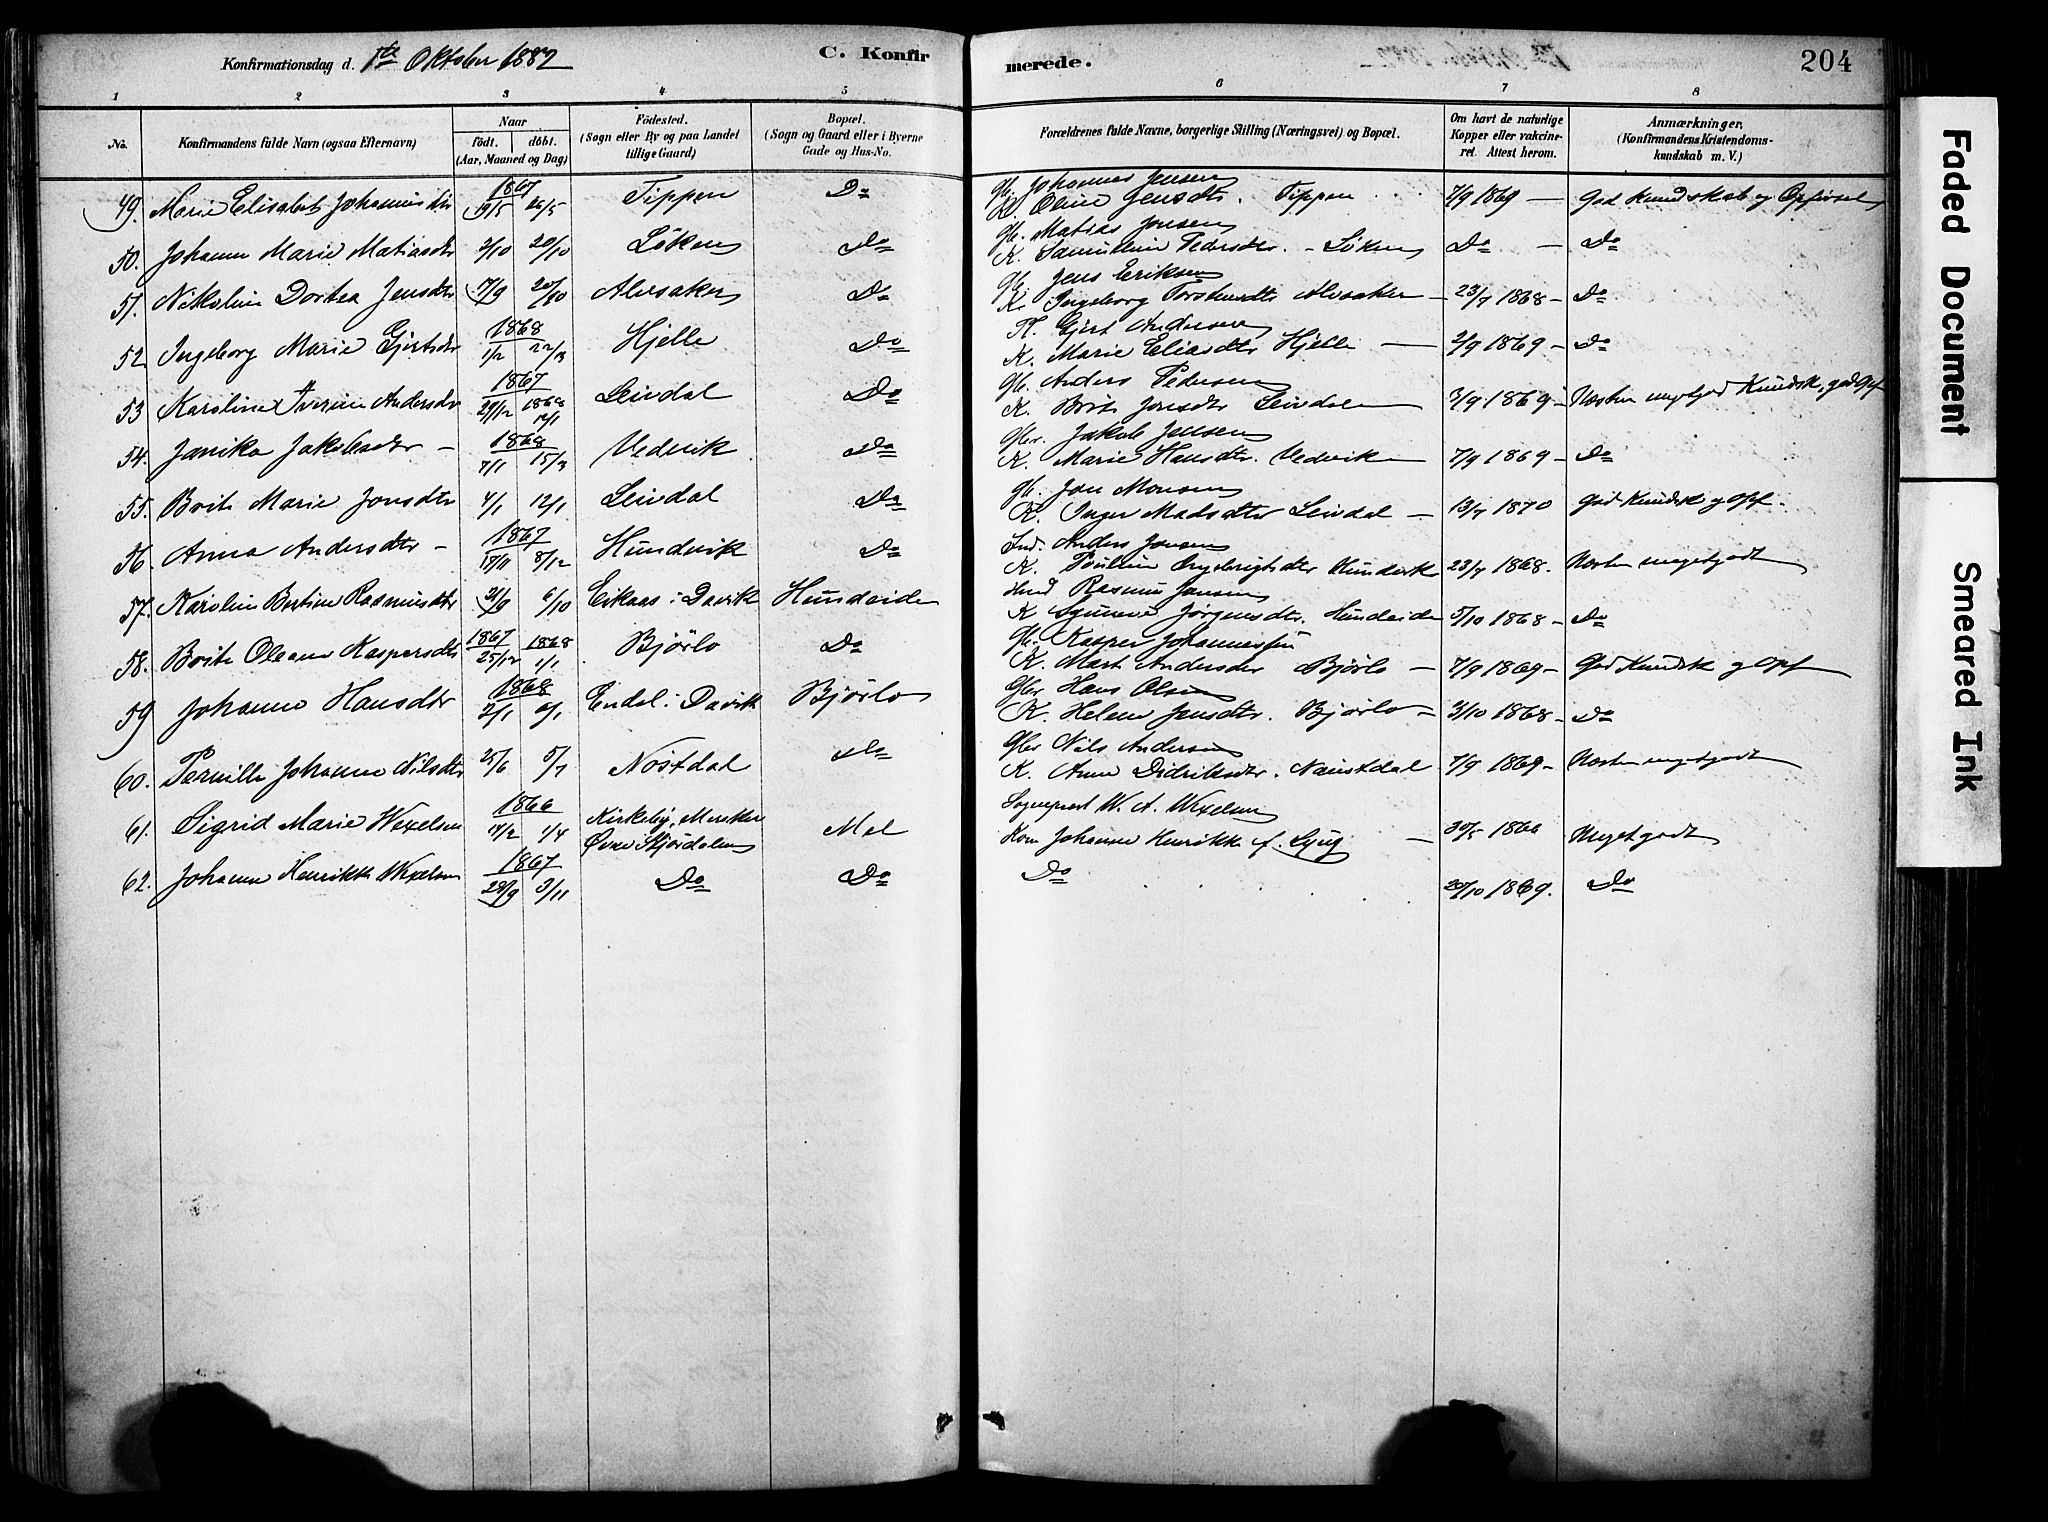 Konfirmationsdag d. 1ste Oktober 1882 C. Konfirmerede. 204
1 2 3 4 5 6 7 8
No. Konfirmandens fulde Navn (ogsaa Efternavn) Naar födt. döbt. (Aar, Maaned og Dag) Födested. (Sogn eller By og paa Landet tillige Gaard) Bopæl. (Sogn og Gaard eller i Byerne Gade og Hus-No. Forældrenes fulde Navne, borgerlige Stilling (Næringsvei) og Bopæl. Om havt de naturlige Kopper eller vakcineret. Attest herom. Anmærkninger. (Konfirmandens Kristendomskundskab m. V.)
49. Marie Elisabet Johannesdtr 1867 19/5 26/5 Tippen Do Gb. Johannes Jensen
K. Oline Jensdtr. Tippen 7/9 1869 — God Kundskab og Opførsel
50. Johanne Marie Matiasdtr 2/10 20/10 Löken Do Gb. Matias Jonsen
K. Pedersdtr. - Löken Do — Do
51. Nikoline Dortea Jensdtr 17/9 Alvsaker Do Gb. Jens Eriksen
K. Ingeborg Alvsaker — 23/7 1868 - Do
52. Ingeborg Marie Gjertsdtr 1868 1/2 22/3 Hjelle Do Pl. Gjert Andersen
K. Marie Eliasdtr Hjelle — 2/9 1869 - Do
53 Karoline Iverine Andersdtr 1867 29/12 1868 12/1 Leivdal Do Gb. Anders Pedersen
K. Brite Jonsdtr Leivdal 3/9 1869 - Næsten megetgod Kundsk, god Opf
54. Janika Jakobsdtr - 1868 7/1 15/3 Vedvik Do Gbr. Jakob Jensen
K. Marie Hansdtr. Vedvik 7/9 1869 - Do
55. Brite Marie Jonsdtr 4/1 12/1 Leivdal Do Gb. Jon Monsen
K. Inger Madsdtr Leivdal - 13/7 1870 God Kundsk og Opf.
56. Anna Andersdtr - 1867 17/11 8/12 Hundvik Do Ind. Anders Jonsen
K. Pauline Hundvik 23/7 1868. Næsten megetgodt
57. Karoline Bertine Rasmusdtr 21/9 6/10 Eikaas i Davik Hundeide Rasmus Jansen
K Jörgensdtr. Hundeide 5/10 1868 - Do
58. Brite Oleane Kaspersdtr 1867 25/12 1868 1/1 Bjørlo Do Gb. Kasper Johannessen
K. Andersdtr Bjørlo — 7/9 1869 - God Kundsk og Opf
59 Johanne Hansdtr 1868 2/1 6/1 Endal i Davik Bjørlo Gbr Hans Olsen
K. Helene Jensdtr. Bjørlo - 3/10 1868 - Do
60. Pernille Johanne Nilsdtr 25/6 5/7 Nöstdal Do Gbr Nils Andersen
K. Anne Didriksdtr. Naustdal 7/9 1869 - Næsten megetgodt
61. Sigrid Marie Wexelsen 1866 14/2 1/4 Kirkeby, Meraker Mel Sogneprest W. A. Wexelsen
Øvre Stjördalen Kone Johanne Henrikke f. Ljug — 30/5 1866 Meget godt
62. Johanne Henrikke Wexelsen 1867 28/9 3/11 Do Do Do 20/10 1869. Do
Faded Document
Smeared Ink